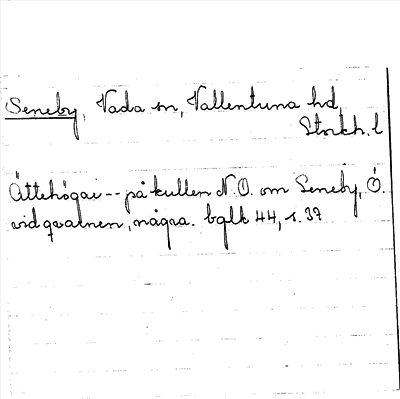 Seneby, Vada sn, Vallentuna hd,
Stockh. l
Ättehögar -- på kullen N.O. om Seneby, Ö.
vid qvarnen, några. bglk 44, s. 37